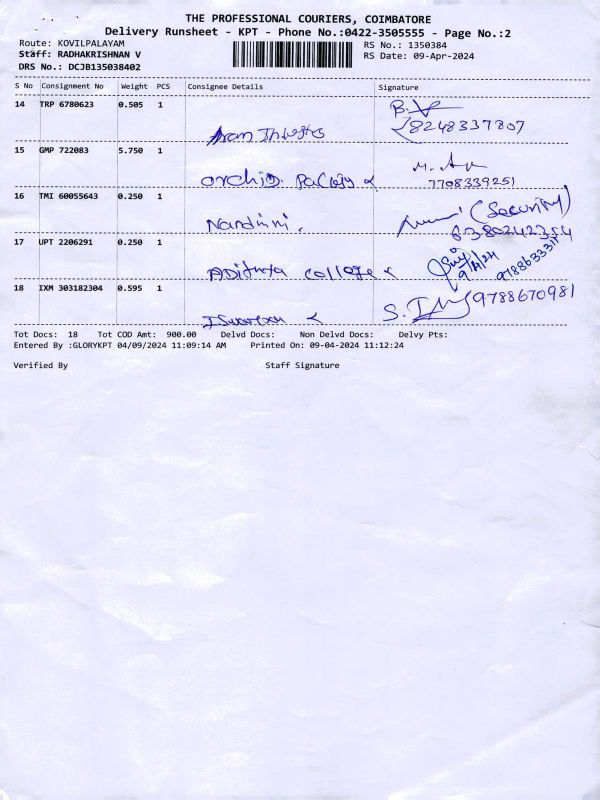 THE PROFESSIONAL COURIERS, COIMBATORE
Delivery Runsheet - KPT - Phone No.:0422-3505555 - Page No.:2
Route: KOVILPALAYAM
RS No.: 1350384
Staff: RADHAKRISHNAN V
RS Date: 09-Apr-2024
DRS No.: DCJB135038402
S No Consignment No Weight PCS Consignee Details Signature
14 TRP 6780623 0.505 1
8248337807
15 GMP 722083 5.750 1
orchid
7708339251
16 TMI 60055643 0.250 1
Nandhini.
(Security)
6380242354
17 UPT 2206291 0.250 1
Adithya college
9/4/24
9788633311
18 IXM 303182304 0.595 1
9788670981
Tot Docs: 18 Tot COD Amt: 900.00 Delvd Docs: Non Delvd Docs: Delvy Pts:
Entered By :GLORYKPT 04/09/2024 11:09:14 AM Printed On: 09-04-2024 11:12:24
Verified By Staff Signature